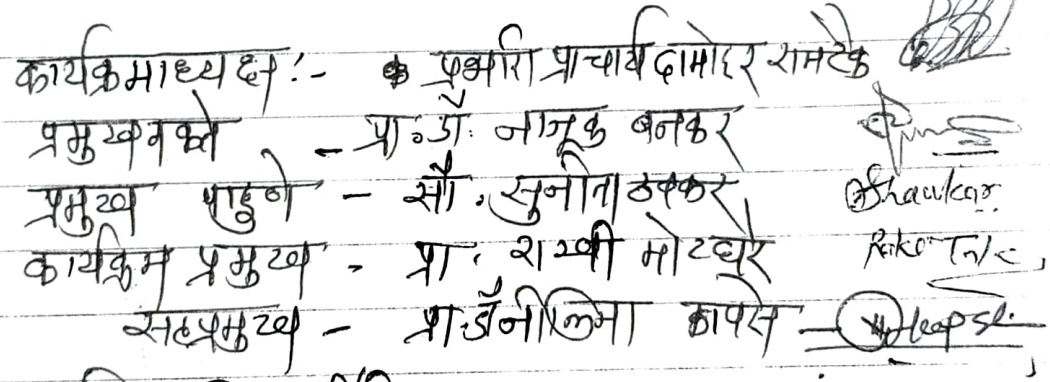 कार्यक्रमाध्यक्ष :- प्रभारी प्राचार्य दामोदर रामटेके
प्रमुख वक्ते - प्रा. डॉ. नाजूक बनकर
प्रमुख पाहुणे - सौ. सुनीता ठवकर
कार्यक्रम प्रमुख - प्रा. राखी मोटघरे
सहप्रमुख - प्रा. डॉ नीलिमा कापसे